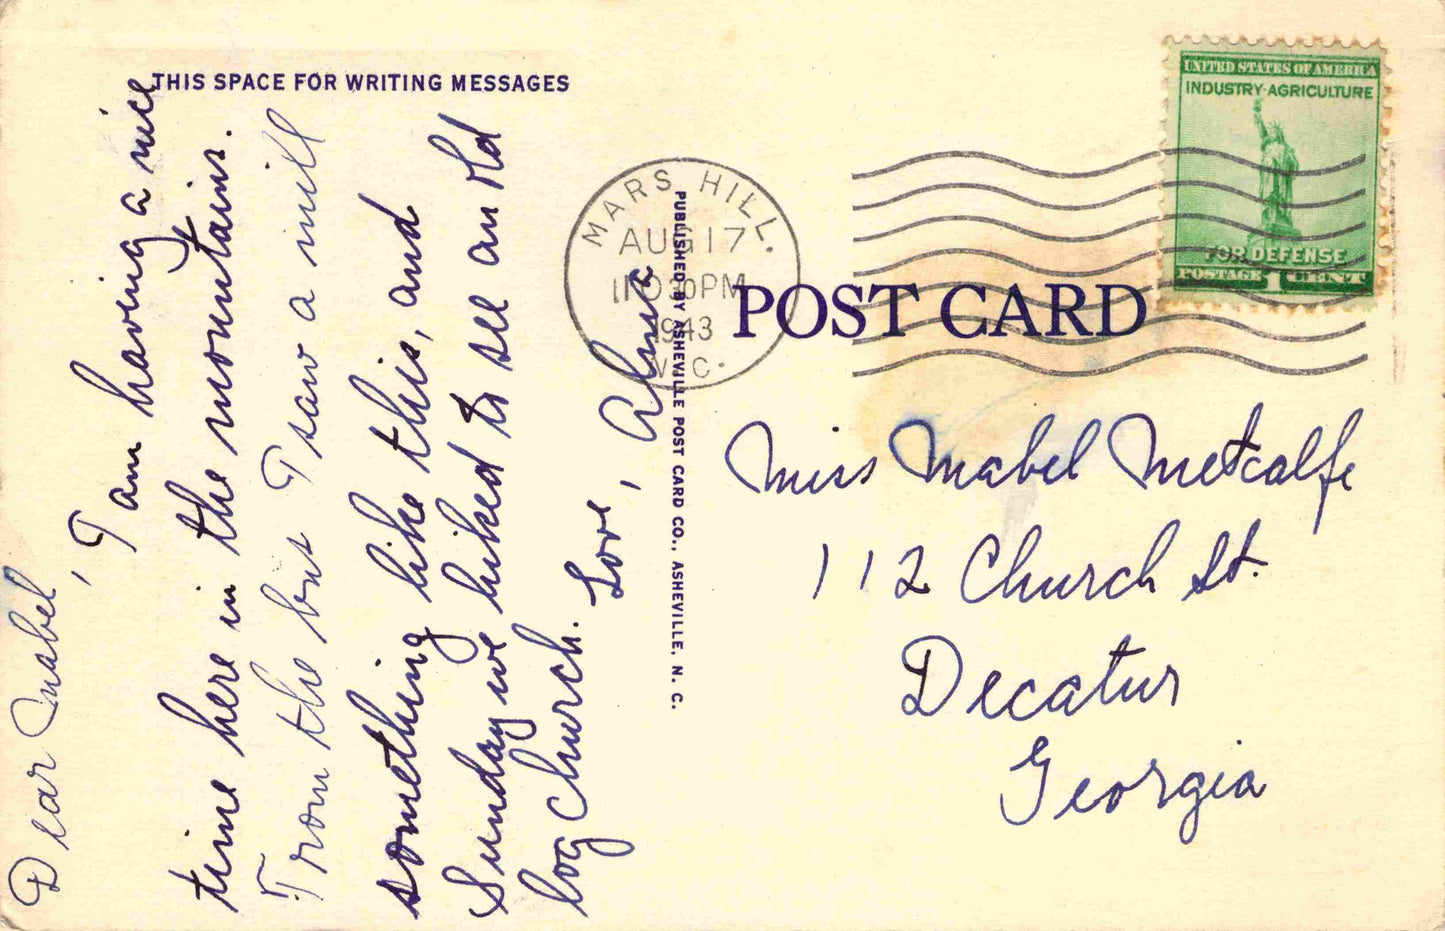 THIS SPACE FOR WRITING MESSAGES
Dear Mabel,
I am having a nice
time here in the mountains.
From the bus I saw a mill
something like this, and
Sunday we hiked to see an old
log church.
Love, Alma
PUBLISHED BY ASHEVILLE POST CARD CO., ASHEVILLE, N. C.
MARS HILL.
AUG 17
PM
1943
N.C.
UNITED STATES OF AMERICA
INDUSTRY-AGRICULTURE
FOR DEFENSE
POSTAGE 1 CENT
POST CARD
Miss Mabel Metcalfe
112 Church St.
Decatur
Georgia